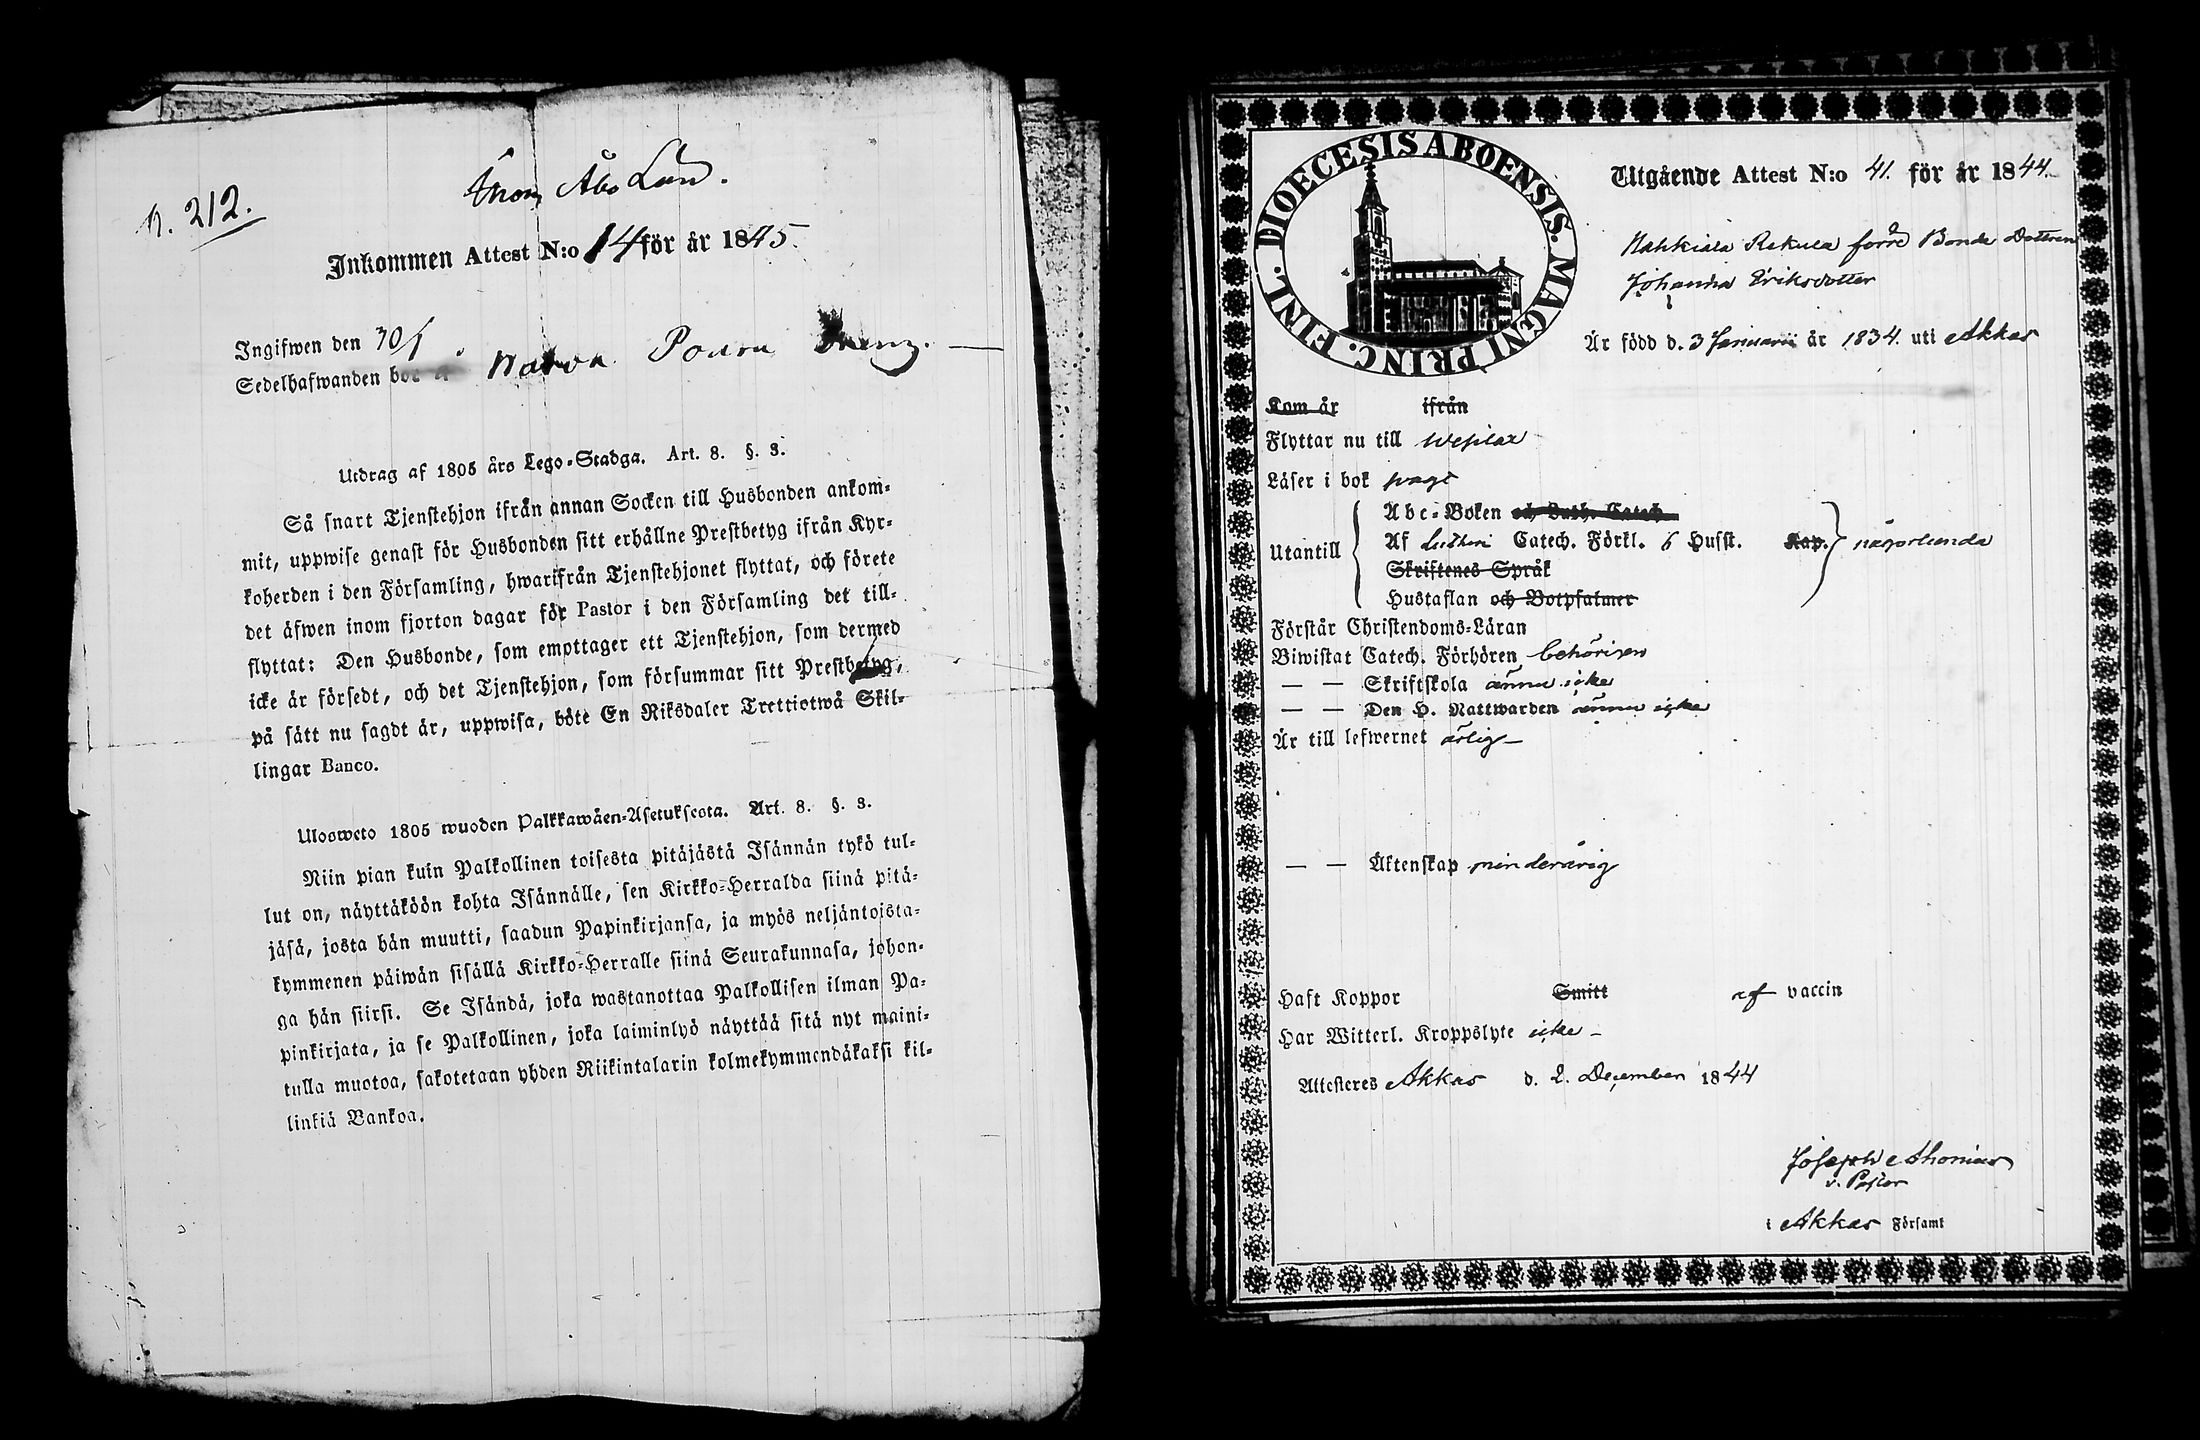 n. 212.
från Åbo Län.
Inkommen Attest N:o 14 för år 1845.
Ingifwen den 30/1
Sedelhafwanden bor
Utdrag af 1805 års Lego-Stadga. Art. 8. §. 3.
Så snart Tjenstehjon ifrån annan Socken till Husbonden ankom-
mit, uppwise genast för Husbonden sitt erhållne Prestbetyg ifrån Kyr-
koherden i den Församling, hwarifrån Tjenstehjonet flyttat, och förete
det äfwen inom fjorton dagar för Pastor i den Församling det till-
flyttat: Den Husbonde, som emottager ett Tjenstehjon, som dermed
icke är försedt, och det Tjenstehjon, som försummar sitt Prestbetyg,
på sätt nu sagdt är, uppwisa, böte En Riksdaler Trettiotwå Skil-
lingar Banco.
Ulosweto 1805 wuoden Palkkawäen-Asetuksesta. Art. 8. §. 3.
Niin pian kuin Palkollinen toisesta pitäjästä Isännän tykö tul-
lut on, näyttäköön kohta Isännälle, sen Kirkko-Herralda siinä pitä-
jäsä, josta hän muutti, saadun Papinkirjansa, ja myös neljäntoista-
kymmenen päiwän sisällä Kirkko-Herralle siinä Seurakunnasa, johon-
ga hän siirsi. Se Isändä, joka wastanottaa Palkollisen ilman Pa-
pinkirjata, ja se Palkollinen, joka laiminlyö näyttää sitä nyt maini-
tulla muotoa, sakotetaan yhden Riikintalarin kolmekymmendäkaksi kil-
linkiä Bankoa.
DIOECESIS ABOENSIS. MAGNI PRINC. FINL.
Utgående Attest N:o 41. för år 1844.
Nahkiala Rekula förre Bonde Dottren
Johanna Eriksdotter
Är född d. 3 Januarii år 1834. uti Akkas
Kom år ifrån
Flyttar nu till Wesilax
Läser i bok swagt
Abc-Boken och Luth. Catech.
Utantill Af Lutheri Catech. Förkl. 6 Husst. Kap. någorlunda
Skriftenes Språk
Hustaflan och Botpsalmer
Förstår Christendoms-Läran
Biwistat Catech. Förhören behörigen
— — Skriftskola ännu icke
— — Den H. Nattwarden ännu icke
Är till lefwernet ärlig —
— — Äktenskap minderårig
Haft Koppor Smitt af vaccin
Har Witterl. Kroppslyte icke —
Attesteres Akkas d. 2. December 1844
Joseph
v. Pastor
i Akkas Församl